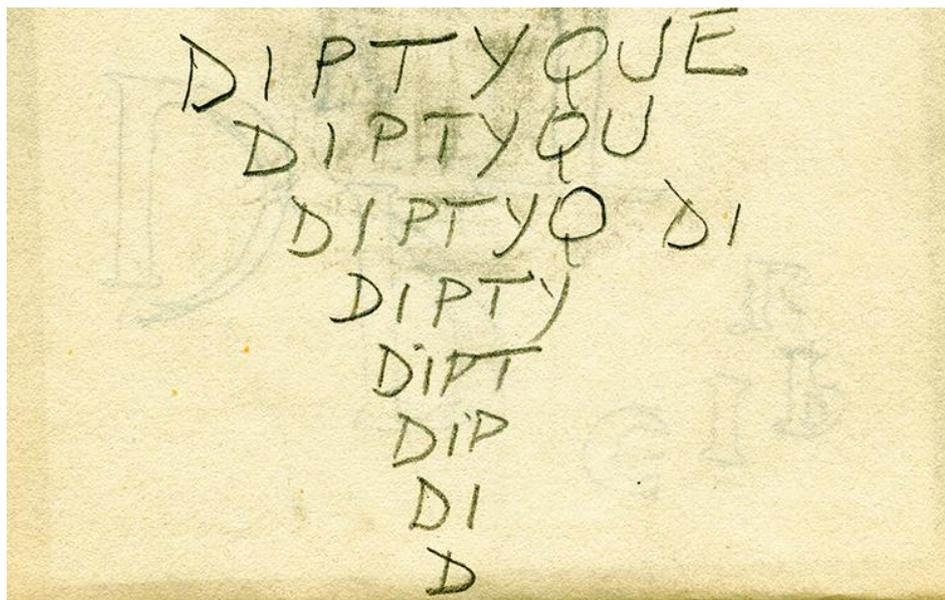 DIPTYQUE
DIPTYQU
DIPTYQ DI
DIPTY
DiPT
DiP
DI
D